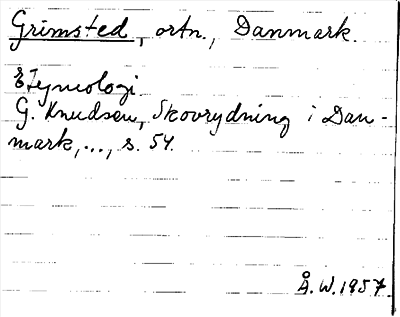 Grimsted, ortn., Danmark.
Etymologi.
G. Knudsen, Skovrydning i Dan-
mark, ..., s. 54.
Å. W. 1957.